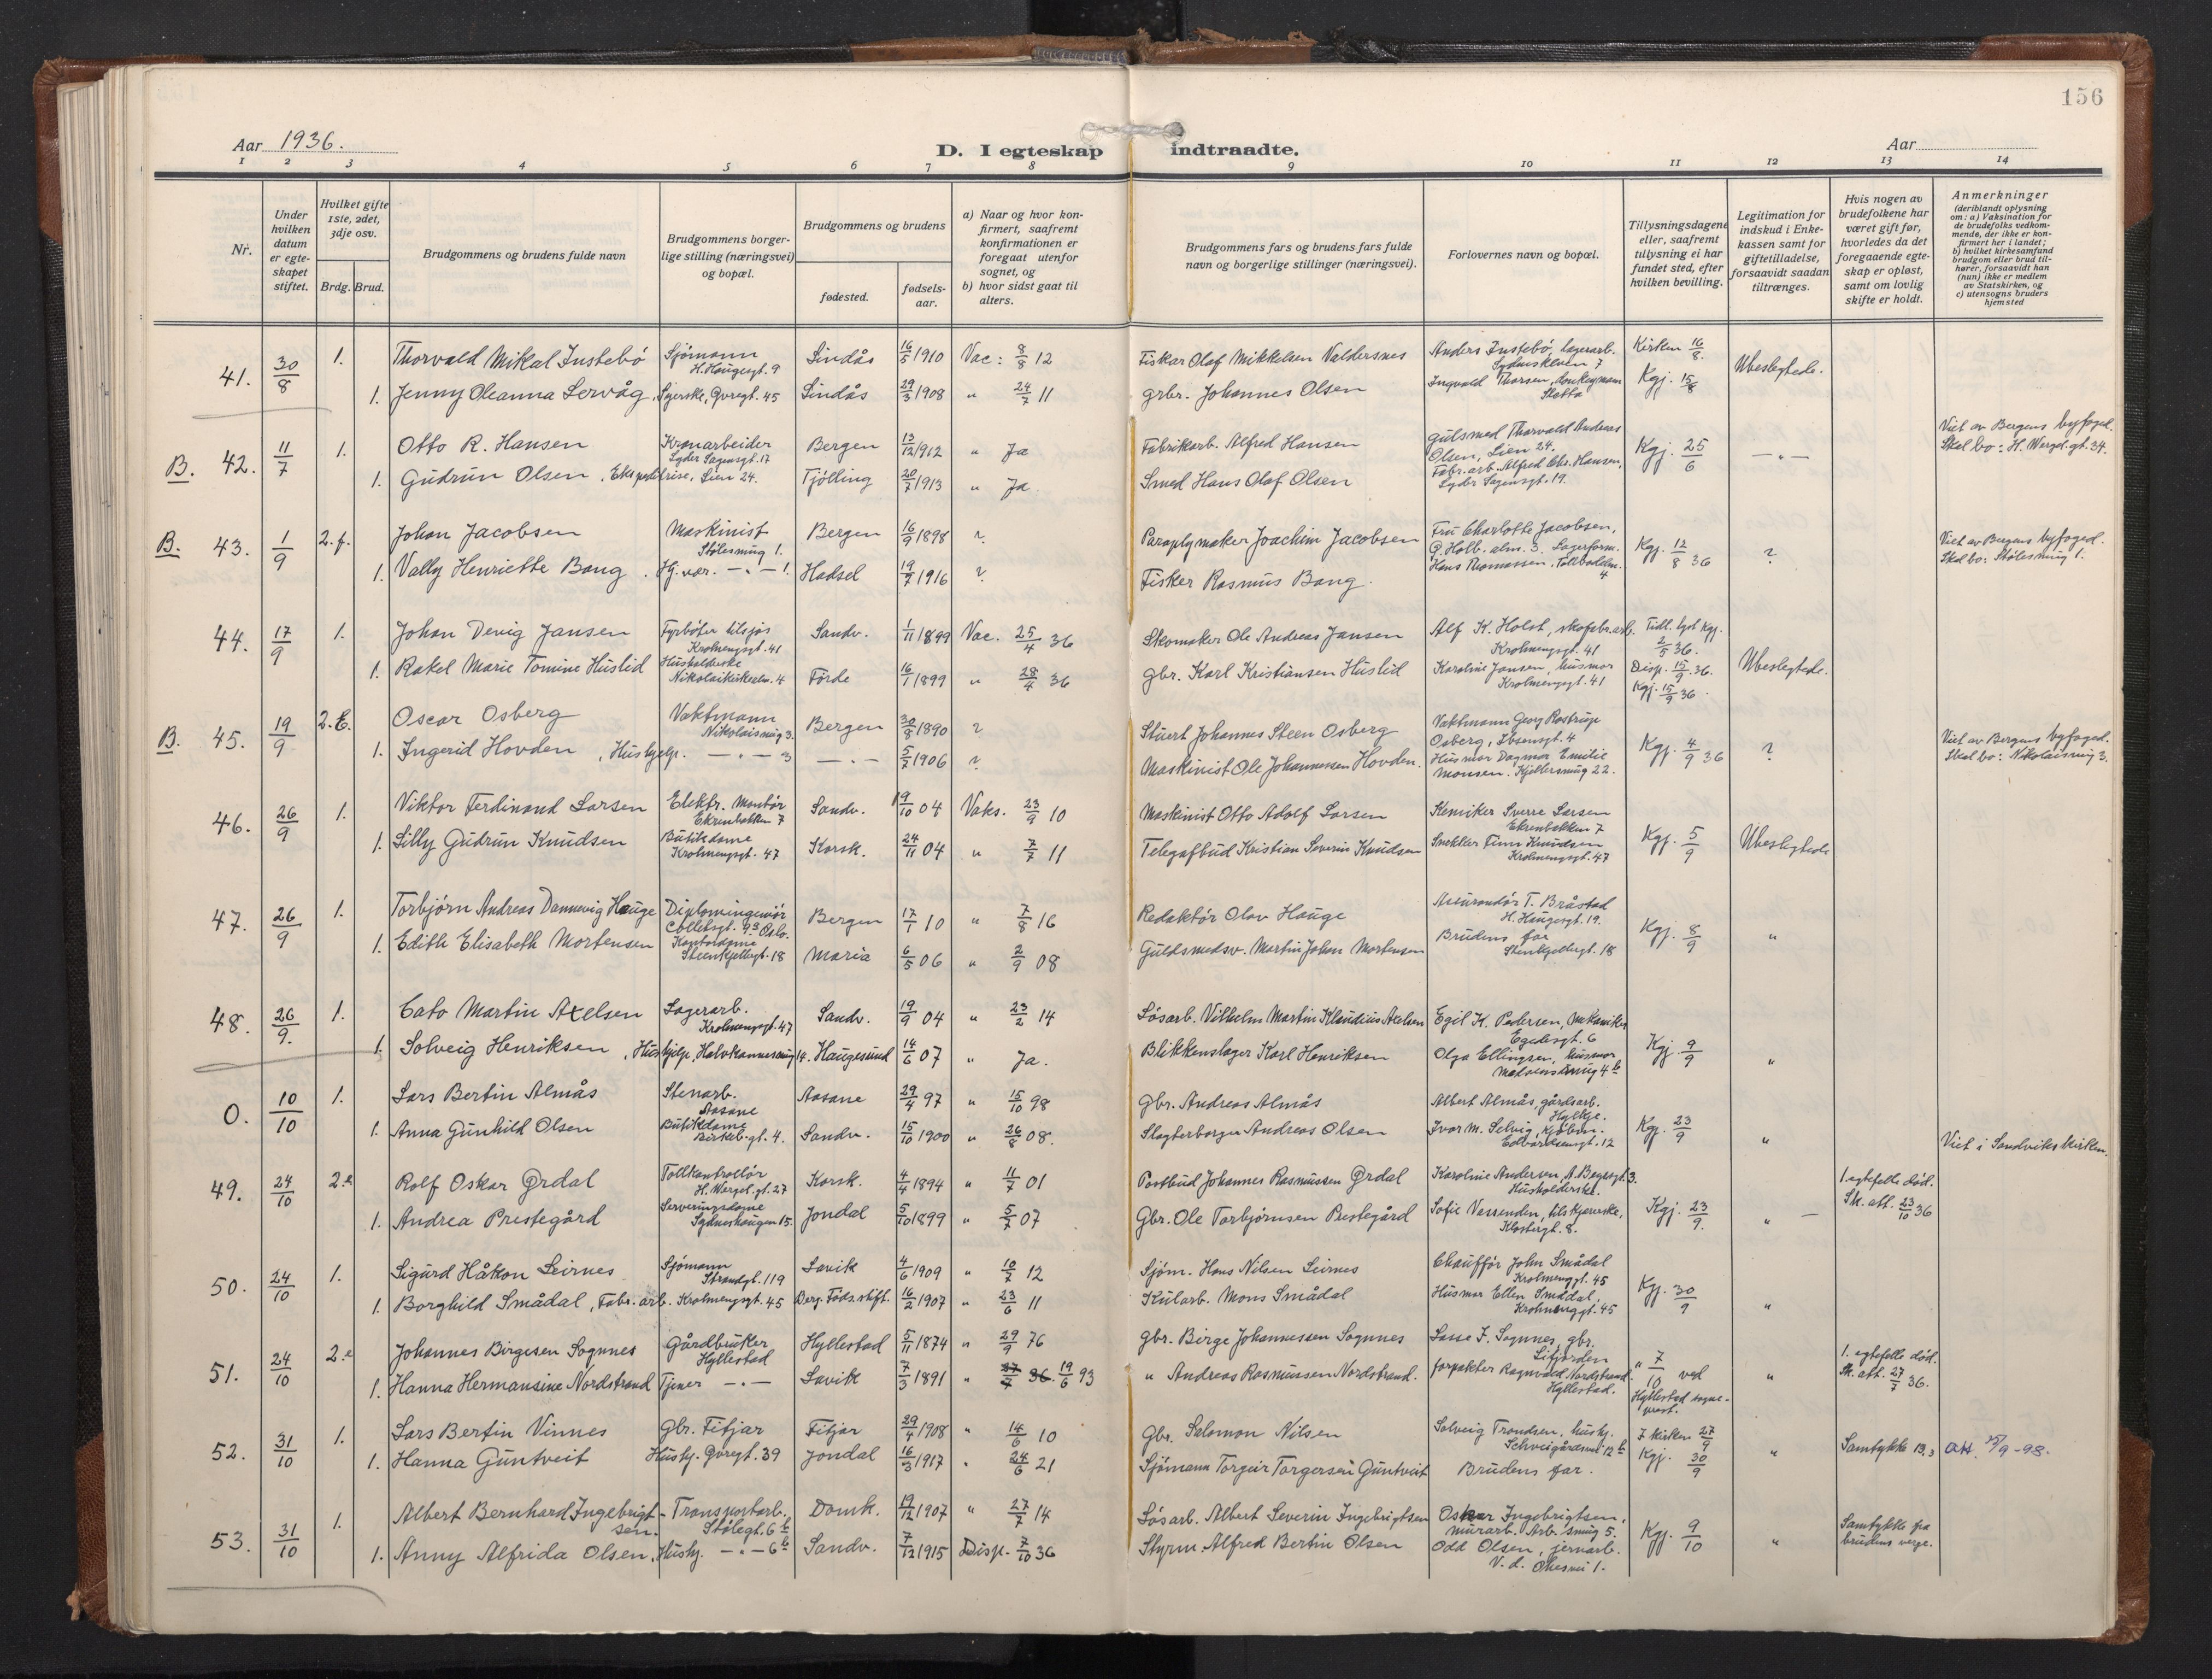 156
Aar 1936.
D. I egteskap indtraadte.
Aar
1 2 3 4 5 6 7 8 9 10 11 12 13 14
Nr.
Under hvilken datum er egteskapet stiftet.
Hvilket gifte 1ste, 2det, 3dje osv.
Brdg. Brud.
Brudgommens og brudens fulde navn
Brudgommens borgerlige stilling (næringsvei) og bopæl.
Brudgommens og brudens
fødested.
fødselsaar.
a) Naar og hvor konfirmert, saafremt konfirmationen er foregaat utenfor sognet, og
b) hvor sidst gaat til alters.
Brudgommens fars og brudens fars fulde navn og borgerlige stillinger (næringsvei).
Forlovernes navn og bopæl.
Tillysningsdagene eller, saafremt tillysning ei har fundet sted, efter hvilken bevilling.
Legitimation for indskud i Enkekassen samt for giftetilladelse, forsaavidt saadan tiltrænges.
Hvis nogen av brudefolkene har været gift før, hvorledes da det foregaaende egteskap er opløst, samt om lovlig skifte er holdt.
Anmerkninger (deriblandt oplysning om: a) Vaksination for de brudefolks vedkommende, der ikke er konfirmert her i landet; b) hvilket kirkesamfund brudgom eller brud tilhører, forsaavidt han (hun) ikke er medlem av Statskirken, og c) utensogns bruders hjemsted
41. 30/8 1. Thorvald Mikal Instebø Sjømann H. Haugesgt. 9 Lindås 16/5 1910 Vac: 8/8 12 Fisker Olaf Mikkelsen Valdersnes Anders Instebø, lagerarb. Sydneskleven 7 Kirken 16/8 Ubeslegtede.
1. Jenny Oleanna Lervåg, Syerske, Øvregt. 45 Lindås 29/3 1908 " 24/7 11 grbr. Johannes Olsen Ingvald Thorsen, donkeymann Sletta Kgj. 15/8
B. 42. 11/7 1. Otto R. Hansen Kranarbeider Lyder Sagensgt. 17 Bergen 13/12 1912 " Ja Fabrikarb. Alfred Hansen Gulsmed Thorvald Andreas Olsen, Lien 24. Kgj. 25/6 — " — Viet av Bergens byfoged. Skal bo: H. Wergel. gt. 34.
1. Gudrun Olsen, Ekspeditrise, Lien 24. Tjølling 20/7 1913 " Ja. Smed Hans Olaf Olsen Fabr. arb. Alfred Chr. Hansen, Lyder Sagensgt. 19.
B. 43. 1/9 2. f. Johan Jacobsen Maskinist Stølesmug 1. Bergen 16/9 1898 ? Paraplymaker Joachim Jacobsen Fru Charlotte Jacobsen, P. Holb. alm. 3. Lagerform. Kgj. 12/8 36 ? Viet av Bergens byfoged. Skal bo: Stølesmug 1.
1. Vally Henriette Bang. Hj. vær. — " — 1. Hadsel 19/7 1916 ? Fisker Rasmus Bang. Hans Thomassen, Tollbodalm. 4
44. 17/9 1. Johan Devig Jansen Fyrbøter tilsjøs Krohnengsgt. 41 Sandv. 1/11 1899 Vac. 25/4 36 Skomaker Ole Andreas Jansen Alf K. Holst, skofabr.arb. Krohnengsgt. 41 Tidl. lyst Kgj. 2/5 36.
1. Rakel Marie Tomine Huslid Husholderske Nikolaikirkealm. 4 Førde 16/1 1899 " 28/4 36 gbr. Karl Kristiansen Huslid Karoline Jansen, husmor Krohnengsgt. 41 Disp. 15/9 36. Kgj. 15/9 36. Ubeslegtede.
B. 45. 19/9 2. E. Oscar Osberg Vaktmann Nikolaismug 3. Bergen 30/8 1890 ? Stuert Johannes Steen Osberg Vaktmann Georg Rostrup Osberg, Ibsensgt. 4 Kgj. 4/9 36 ? Viet av Bergens byfoged. Skal bo: Nikolaismug 3.
1. Ingerid Hovden, Hushjelp. — " — 3 — " — 5/7 1906 ? Maskinist Ole Johannessen Hovden. Husmor Dagmar Emilie Monsen. Kjellersmug 22.
46. 26/9 1. Viktor Ferdinand Larsen Elektr. Montør Ekrenbakken 7 Sandv. 19/10 04 Vaks. 23/9 10 Maskinist Otto Adolf Larsen Kemiker Sverre Larsen Ekrenbakken 7 Kgj. 5/9 Ubeslegtede
1. Lilly Gudrun Knudsen Butikdame Krohnengsgt. 47 Korsk. 24/11 04 " 7/7 11 Telegafbud Kristian Severin Knudsen Snekker Finn Knudsen Krohnengsgt. 47
47. 26/9 1. Torbjørn Andreas Dannevig Hauge Diplomingeniør Colletsgt. 43 Oslo. Bergen 17/1 10 " 7/8 16 Redaktør Olav Hauge T. Bråstad H. Haugesgt. 19. Kgj. 8/9 "
1. Edith Elisabeth Mortensen Kontordame Steenkjellergt. 18 Maria 6/5 06 " 2/9 08 Guldsmedsv. Martin Johan Mortensen Brudens far Stenkjellergt. 18
48. 26/9. 1. Cato Martin Axelsen Lagerarb. Krohnengsgt. 47 Sandv. 19/9 04 " 23/2 14 Løsarb. Vilhelm Martin Klaudius Axelsen Egil K. Pedersen, mekaniker Egedesgt. 6 Kgj. 9/9 "
1. Solveig Henriksen, Hushjelp, Halvkannesmug 14. Haugesund 14/6 07 " Ja. Blikkenslager Karl Henriksen Olga Ellingsen, husmor Madsensmug 4 b
0. 10/10 1. Lars Bertin Almås Stenarb. Aasane Aasane 29/4 97 " 15/10 98 gbr. Andreas Almås Albert Almås, gårdsarb. Hylkje. Kgj. 23/9 " Viet i Sandvikskirken.
1. Anna Gunhild Olsen Butikdame Birkeb. gt. 4. Sandv. 15/10 1900 " 26/8 08. Slagterborger Andreas Olsen Ivar M. Selvig, kjøbm. Edvardsensgt. 12
49. 24/10 2.e Rolf Oskar Ørdal Tollkontrollør H. Wergel. gt. 27 Korsk. 4/4 1894 " 11/7 01 Postbud Johannes Rasmussen Ørdal Karoline Andersen A. Beyesgt. 3. Husholderske. Kgj. 23/9. " — 1. egtefelle død. Sk. att. 23/10 36
1. Andrea Prestegård Serveringsdame Sydneshaugen 15. Jondal 5/10 1899 " 5/7 07 Gbr. Ole Torbjørnsen Prestegård Sofie Vessenden, tilskjærerske, Klostergt. 8.
50. 24/10 1. Sigurd Håkon Leirnes Sjømann Strandgt. 119 Lavik 4/6 1909 " 10/7 12 Sjøm. Hans Nilsen Leirnes Chauffør John Smådal Krohnenggt. 45 Kgj. 30/9 "
1. Borghild Smådal, Fabr. arb. Krohnengsgt. 45 Berg. Føds. stift. 16/2 1907 " 23/6 11 Kularb. Mons Smådal Husmor Ellen Smådal, Krohnenggt. 45
51. 24/10 2.e Johannes Birgesen Sognnes Gårdbruker Hyllestad Hyllestad 5/11 1874 " 29/9 76 gbr. Birge Johannessen Sognnes Lasse J. Sognnes, gbr. Lifjorden " 7/10 ved Hyllestad sogneprest. " 1. egtefelle død. Sk. att. 27/7 36.
1. Hanna Hermansine Nordstrand Tjener — " — Lavik 7/3 1891 " 27/7 36. 19/6 93 " Andreas Rasmussen Nordstrand. forpakter Ragnvald Nordstrand. Hyllestad.
52. 31/10 1. Lars Bertin Vinnes Gbr. Fitjar Fitjar 29/4 1908 " 14/6 10 Gbr. Salomon Nilsen Solveig Trondsen, hushj. Schweigårdsvei 12 b I kirken 27/9 " Samtykke 13.3 att. 25/9 - 98.
1. Hanna Guntveit Hushj. Øvregt. 39 Jondal 16/3 1917 " 24/6 21 Sjømann Torgeir Torgersen Guntveit Brudens far. Kgj. 30/9
53. 31/10 1. Albert Bernhard Ingebrigtsen. Transportarb., Stølegt. 6 b Domk. 19/12 1907 " 27/7 14 Løsarb. Albert Severin Ingebrigtsen Oskar Ingebrigtsen, murarb. Arb. smug 5. Kgj. 9/10 " Samtykke fra brudens verge.
1. Anny Alfrida Olsen, Hushj. — " — 6 b Sandv. 7/12 1915 Disp. 7/10 36 Styrm. Alfred Bertin Olsen Odd Olsen, jernarb. V. d.